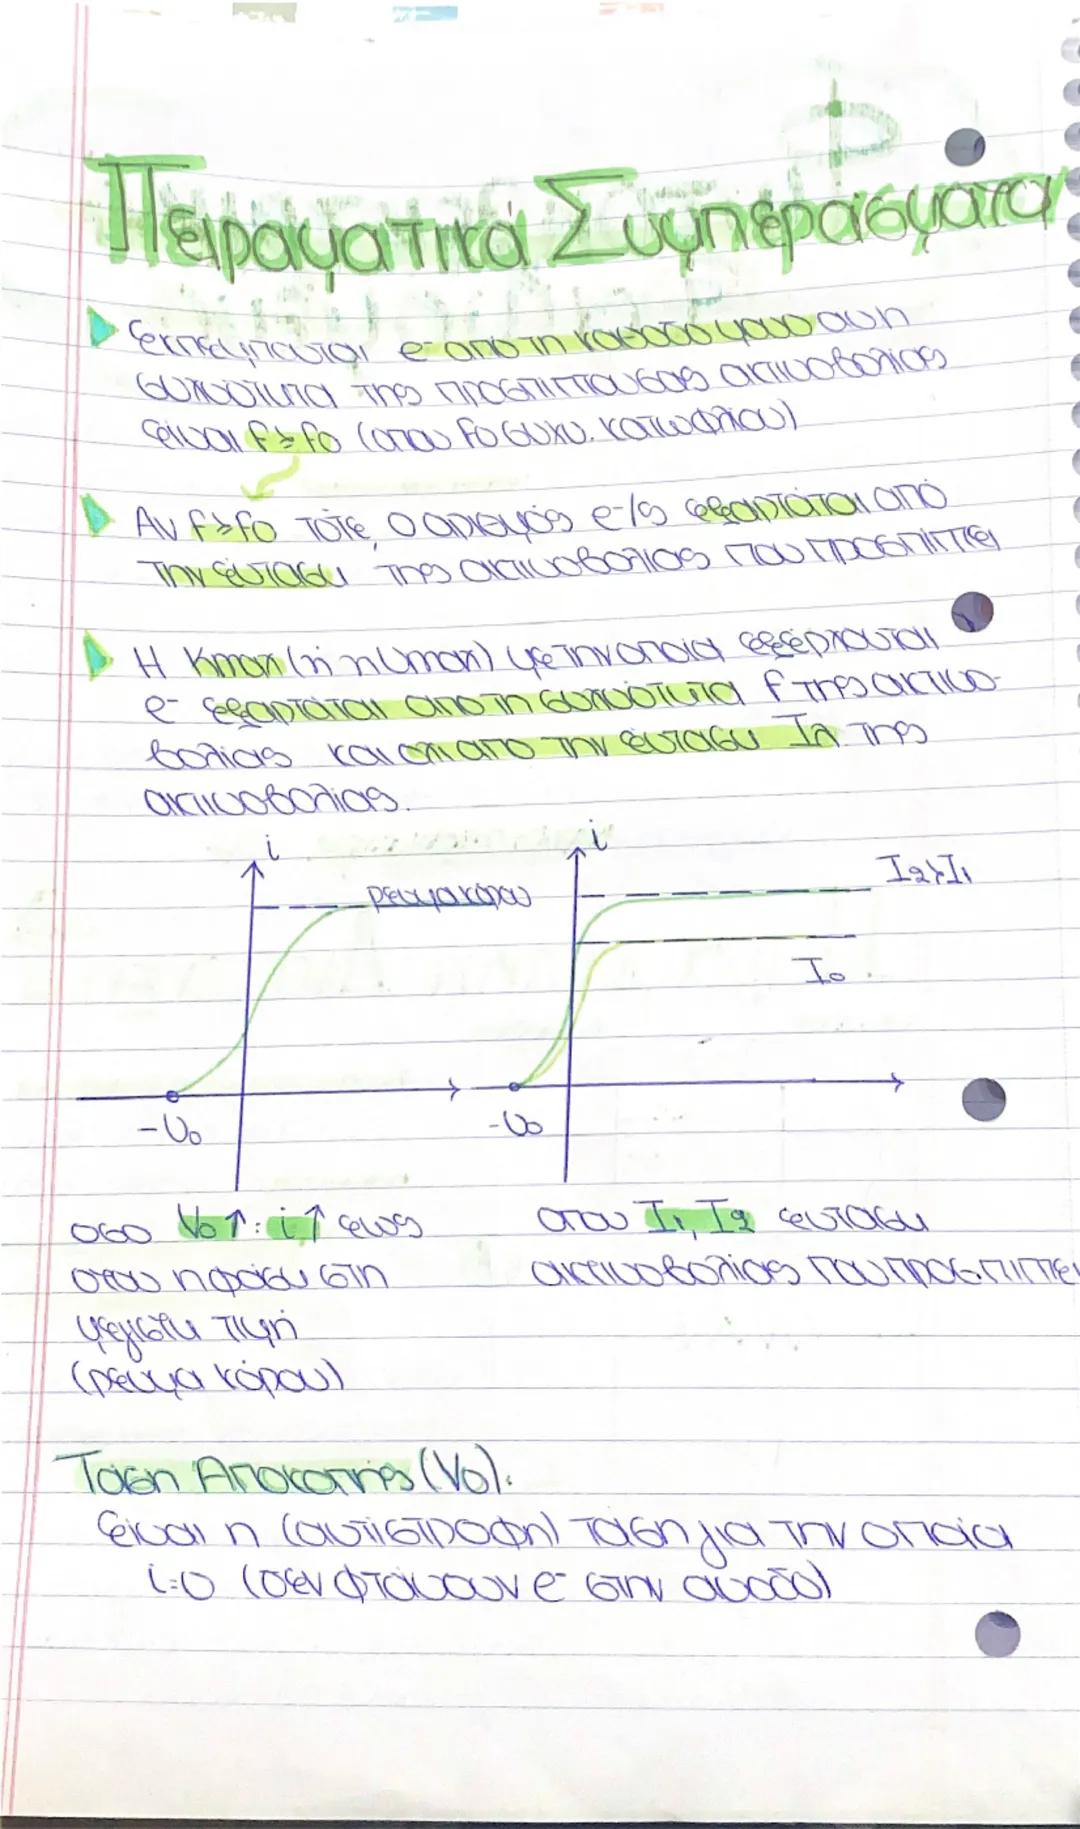 Πειραματικά Συμπεράσματα
εκπέμπονται e- από τη κάθοδο μόνο αν η
συχνότητα της προσπίπτουσας ακτινοβολίας
είναι f≥fo (όπου fo συχν. κατωφλίου)
Αν f≥fo τότε, ο αριθμός e-/s εξαρτάται από
την ένταση της ακτινοβολίας που προσπίπτει
Η Kmax (ή η υmax) με την οποία εξέρχονται
e- εξαρτάται από τη συχνότητα f της ακτινο-
βολίας και όχι από την ένταση Iλ της
ακτινοβολίας.
i
ρεύμα κόρου
-Vo
i
I2>I1
Io
-Vo
όσο Vo↑: i↑ έως
όταν η φράση στη
μέγιστη τιμή
(ρεύμα κόρου)
όπου I1, I2 ένταση
ακτινοβολίας που προσπίπτει
Τάση Αποκοπής (Vo).
είναι η (αντίστροφη) τάση για την οποία
i=0 (δεν φτάνουν e- στην άνοδο)